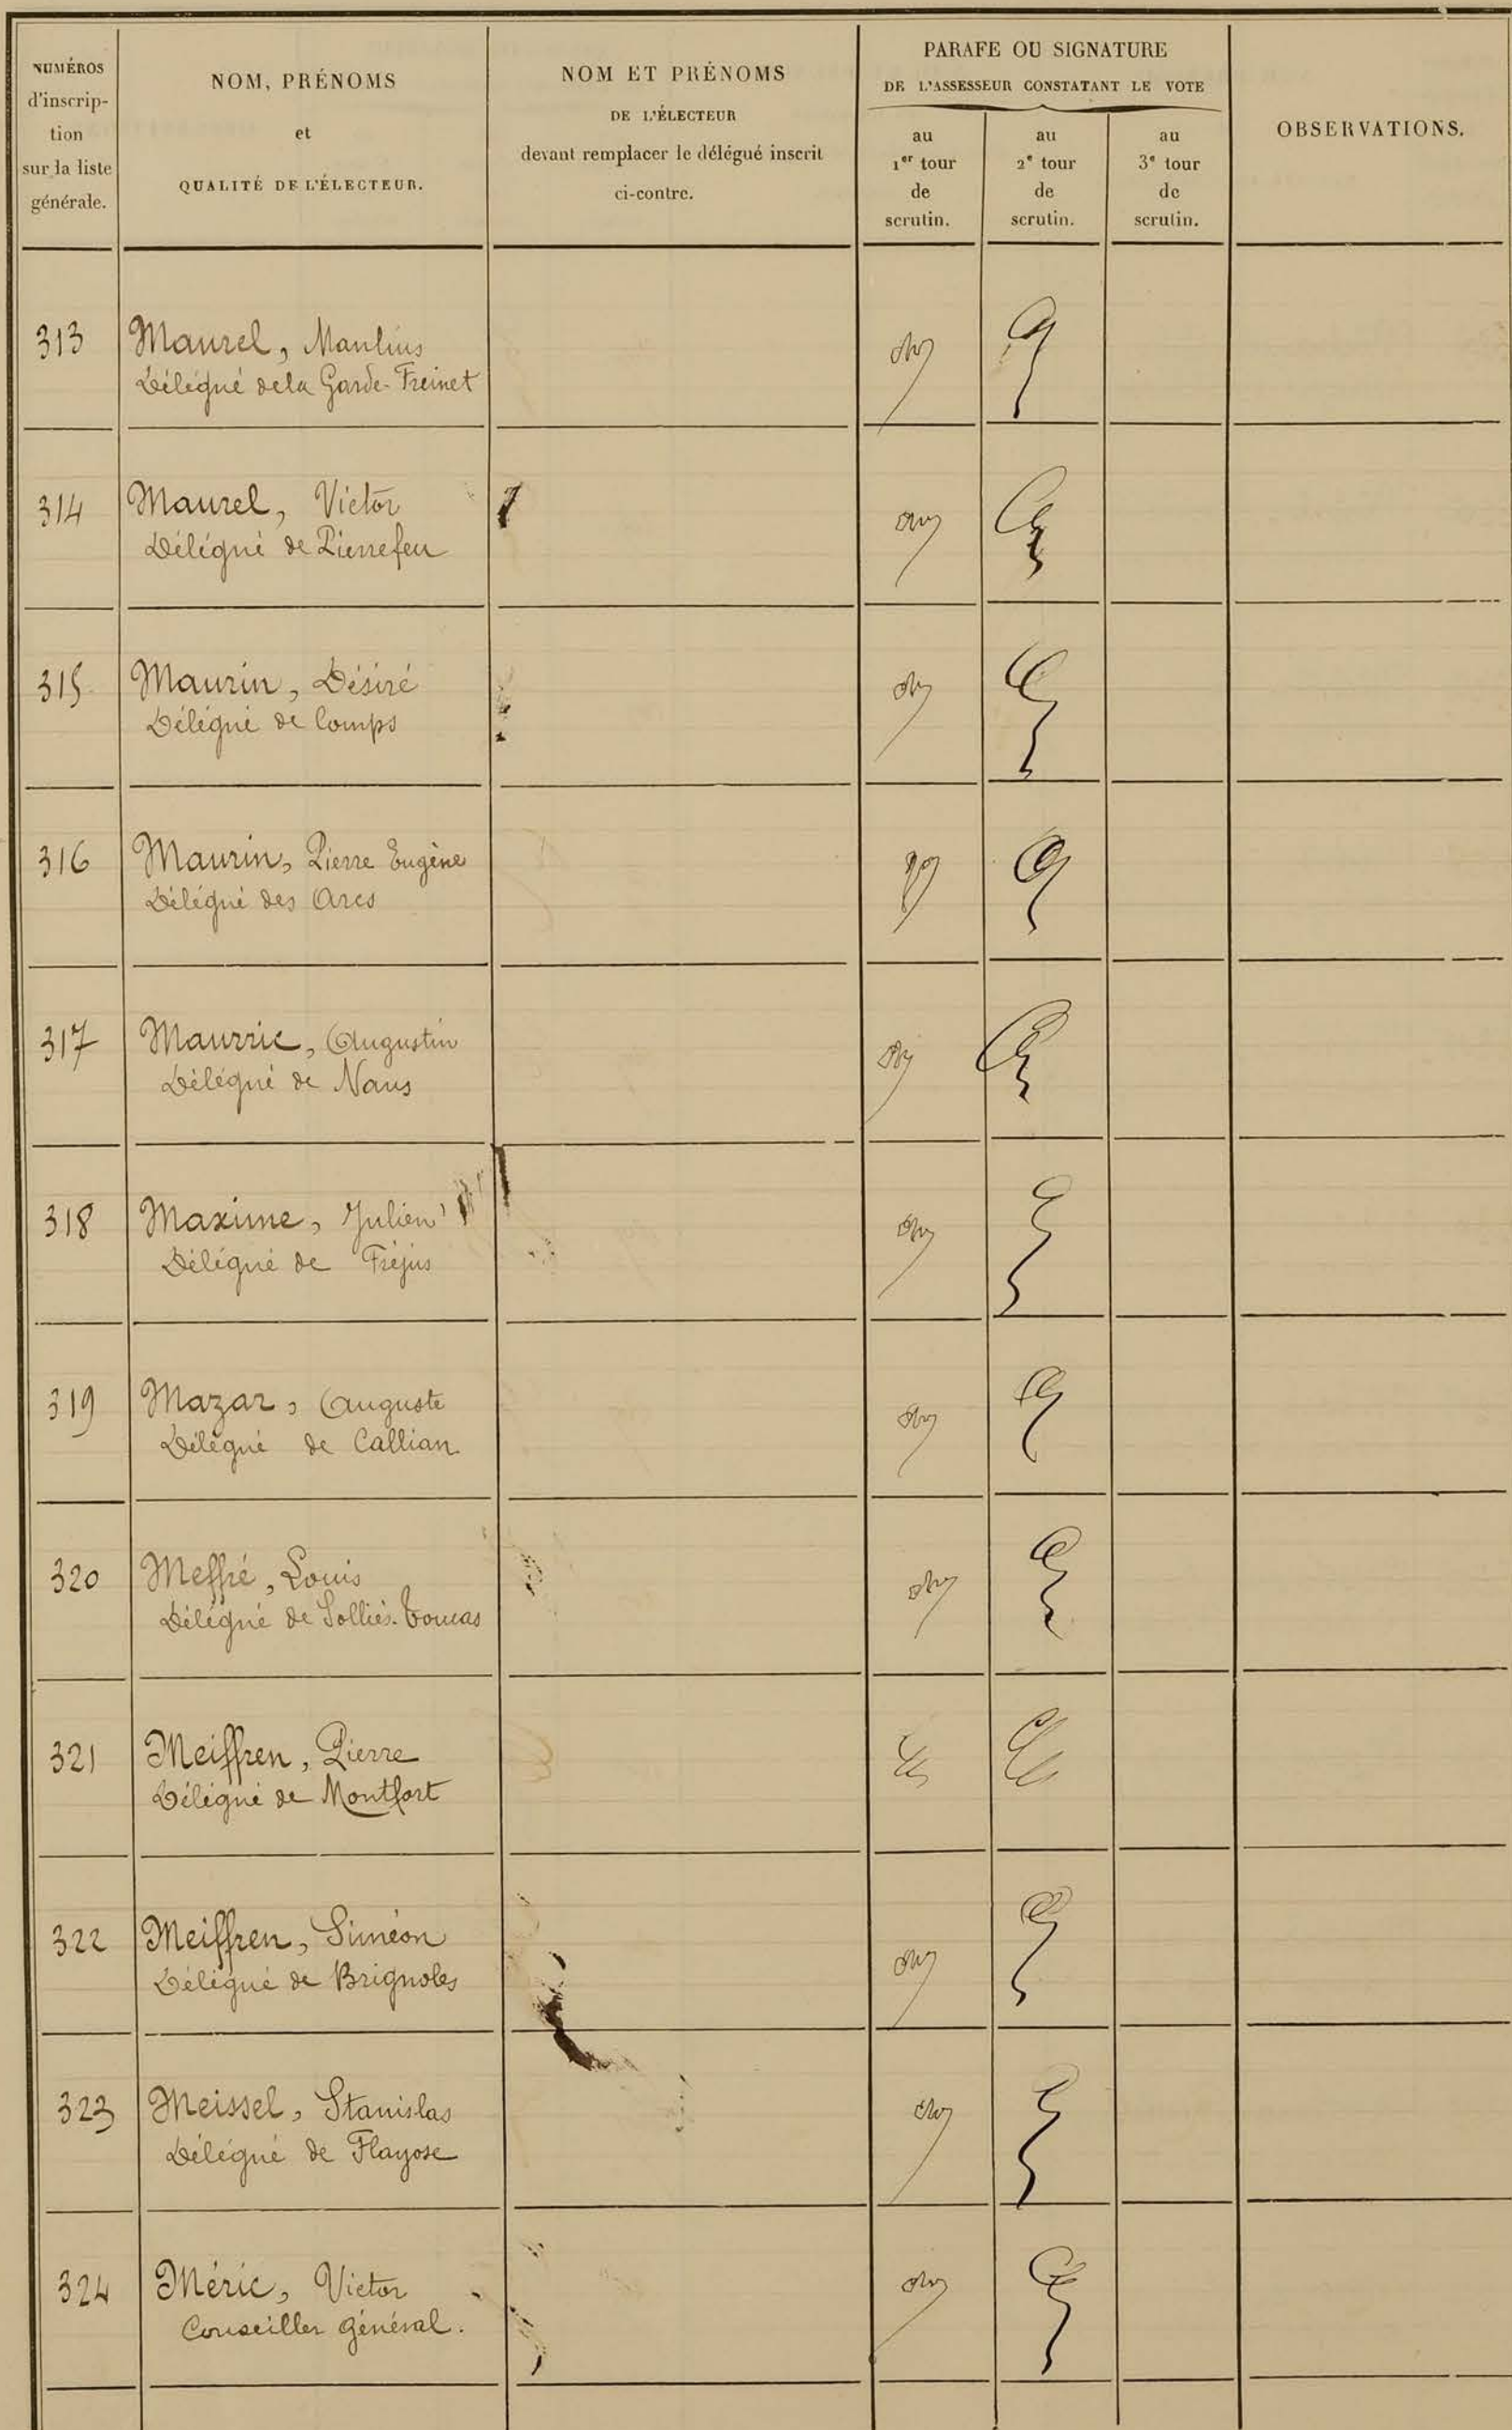 NUMÉROS
d'inscrip-
tion
sur la liste
générale.
NOM, PRÉNOMS
et
QUALITÉ DE L'ÉLECTEUR.
NOM ET PRÉNOMS
DE L'ÉLECTEUR
devant remplacer le délégué inscrit
ci-contre.
PARAFE OU SIGNATURE
DE L'ASSESSEUR CONSTATANT LE VOTE
au
1er tour
de
scrutin.
au
2e tour
de
scrutin.
au
3e tour
de
scrutin.
OBSERVATIONS.
313 Maurel, Manlius
Délégué de la Garde-Freinet
314 Maurel, Victor
Délégué de Pierrefeu
315 Maurin, Désiré
Délégué de Comps
316 Maurin, Pierre Eugène
Délégué des Arcs
317 Maurric, Augustin
Délégué de Nans
318 Maxime, Julien
Délégué de Fréjus
319 Mazar, Auguste
Délégué de Callian
320 Meffré, Louis
Délégué de Solliès-Toucas
321 Meiffren, Pierre
Délégué de Montfort
322 Meiffren, Siméon
Délégué de Brignoles
323 Meissel, Stanislas
Délégué de Flayosc
324 Méric, Victor
Conseiller général.